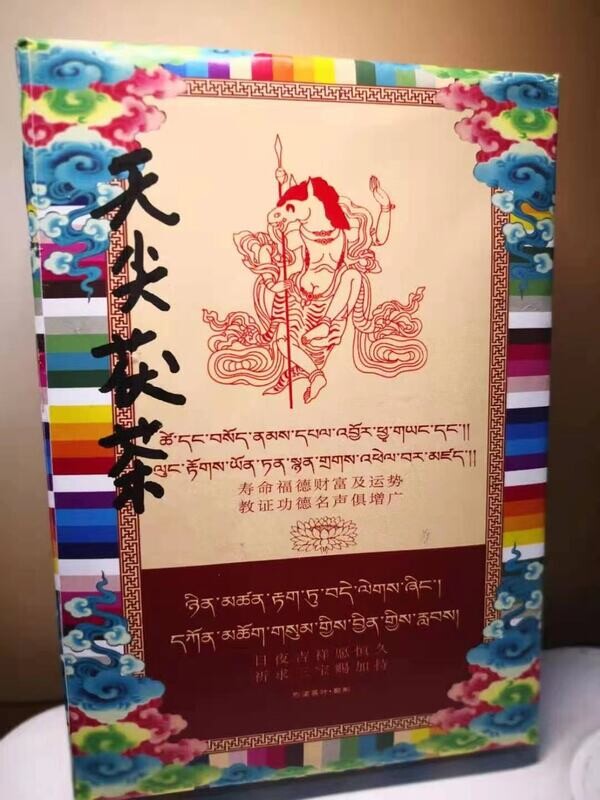 天尖茯茶
ཚེ་དང་བསོད་ནམས་དཔལ་འབྱོར་ཕྱྭ་གཡང་དང་།།
ལུང་རྟོགས་ཡོན་ཏན་སྙན་གྲགས་འཕེལ་བར་མཛད།།
寿命福德财富及运势
教证功德名声俱增广
ཉིན་མཚན་རྟག་ཏུ་བདེ་ལེགས་ཤིང་།
དཀོན་མཆོག་གསུམ་གྱིས་བྱིན་གྱིས་རློབས།
日夜吉祥愿恒久
祈求三宝赐加持